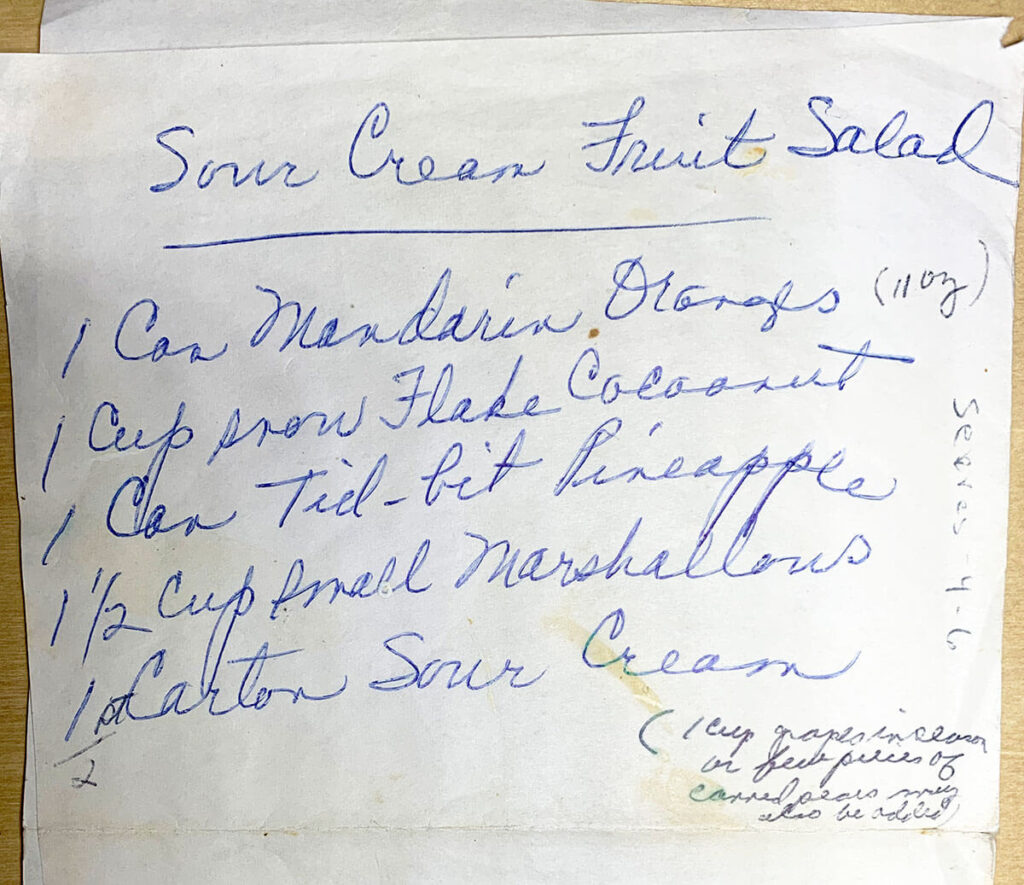 Sour Cream Fruit Salad
1 Can Mandarin Oranges (11 oz)
1 Cup snow Flake Cocoanut
1 Can Tid-bit Pineapple
1 1/2 Cup small Marshallows
1 Carton Sour Cream
pt
/2
(1 cup grapes in season
or few pieces of
canned pears may
also be added)
Serves - 4-6